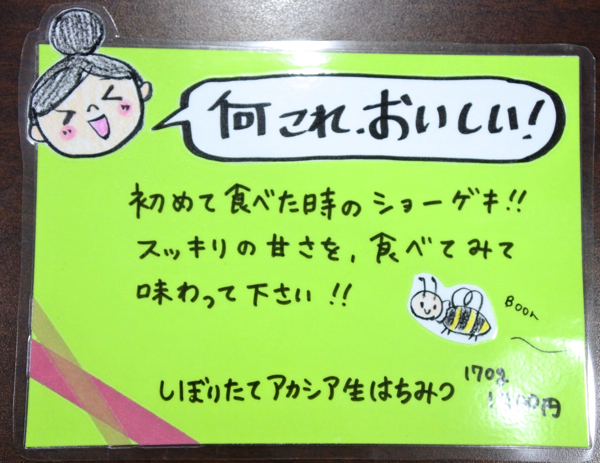 何これ、おいしい!
初めて食べた時のショーゲキ!!
スッキリの甘さを、食べてみて
味わって下さい!!
Boon
しぼりたてアカシア生はちみつ
170g